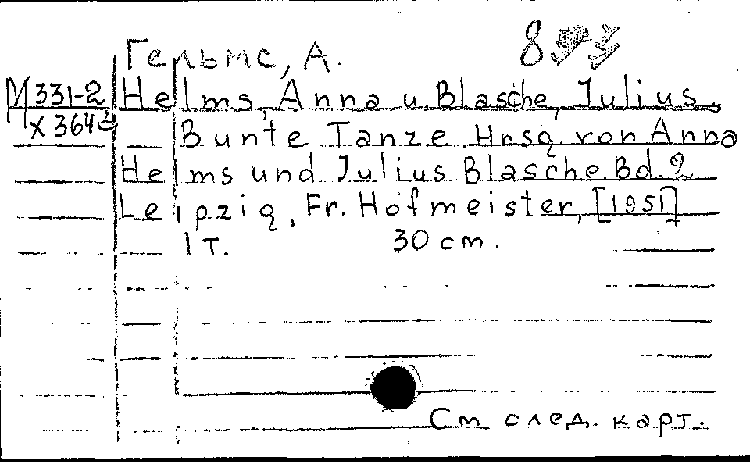 Гельмс, А.
M 331-2 Helms, Anna u. Blasche, Julius.
X 364 Bunte Tänze. Hrsg. von Anna
Helms und Julius Blasche. Bd. 2
Leipzig, Fr. Hofmeister, [1951]
1 т. 30 cm.
См след. карт.